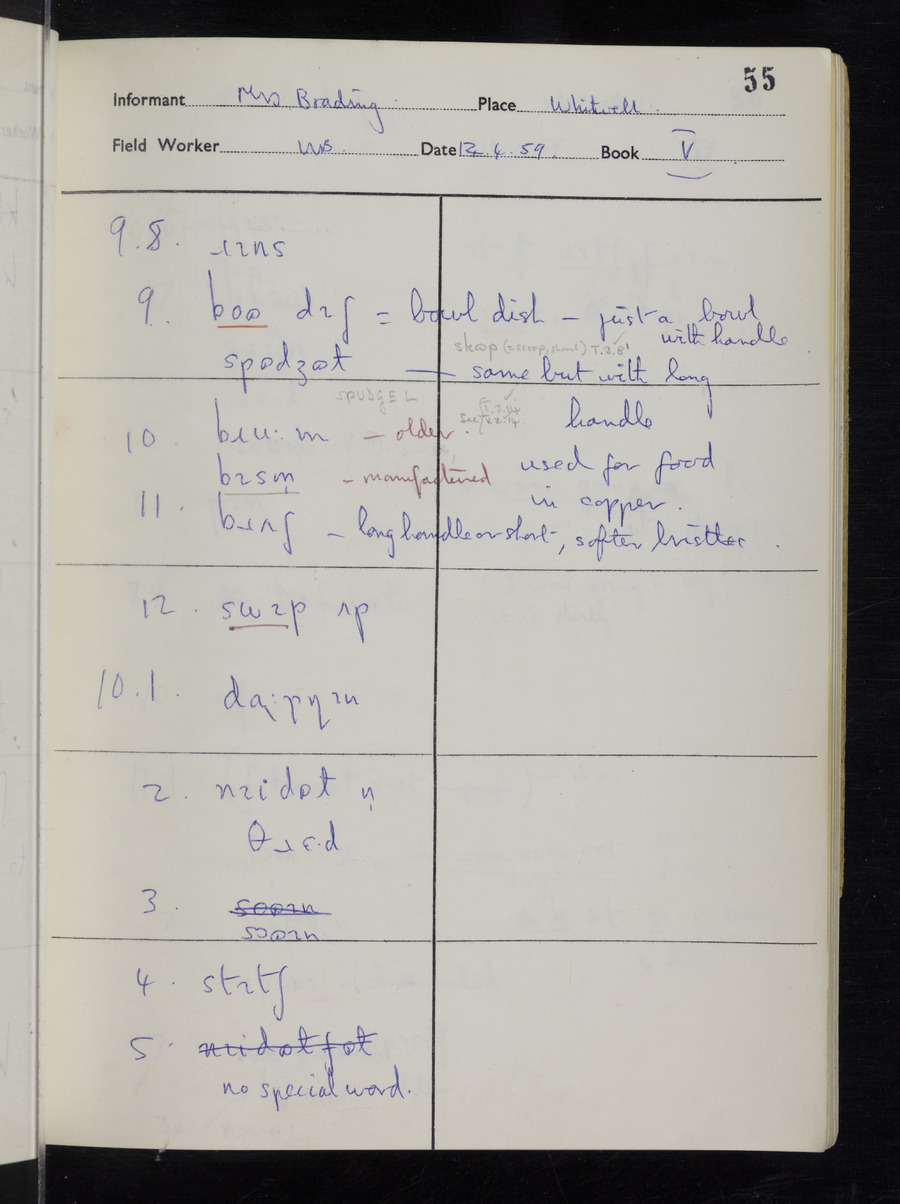 55
Informant Mrs Brading Place Whitwell
Field Worker Date 12.4.59. Book V
9.8. ɹɪns
9. boʊ dɪʃ = bowl dish – just a bowl
with handle
skoop (= scoop, small) T.3.8
spɒdʒət — same but with long
handle
SPUDGEL
10. bɹuːm – older.
bɪsm̩ – manufactured used for food
in copper.
11. bɹʌʃ – long handle or short, softer bristles.
12. swɪp ʌp
10.1.
2. nɪidət n̩
θɹɛ·d
3. soʊɪn
sɔʊɪn
4. stɪtʃ
5. nɪidət fət
no special word.